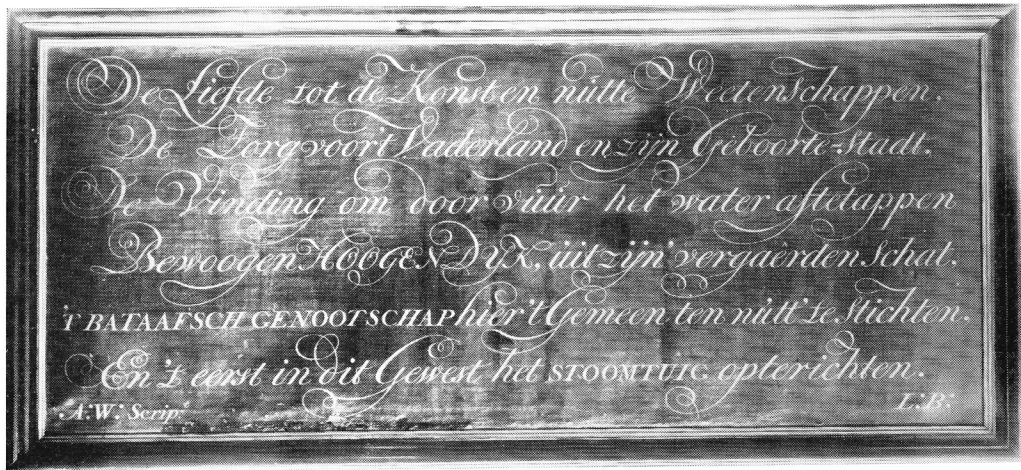 De Liefde tot de Konst en nútte Weetenschappen.
De Zorg voor't Vaderland en zijn Geboorte-Stadt.
De Vinding om door vúúr het water aftetappen
Bewoogen HOOGENDYK, úit zijn vergaêrden Schat.
'T BATAAFSCH GENOOTSCHAP hier 't Gemeen ten nútt' te Stichten.
En 't eerst in dit Gewest het STOOMTUIG opterichten.
A:W: Scrip:
L:B: